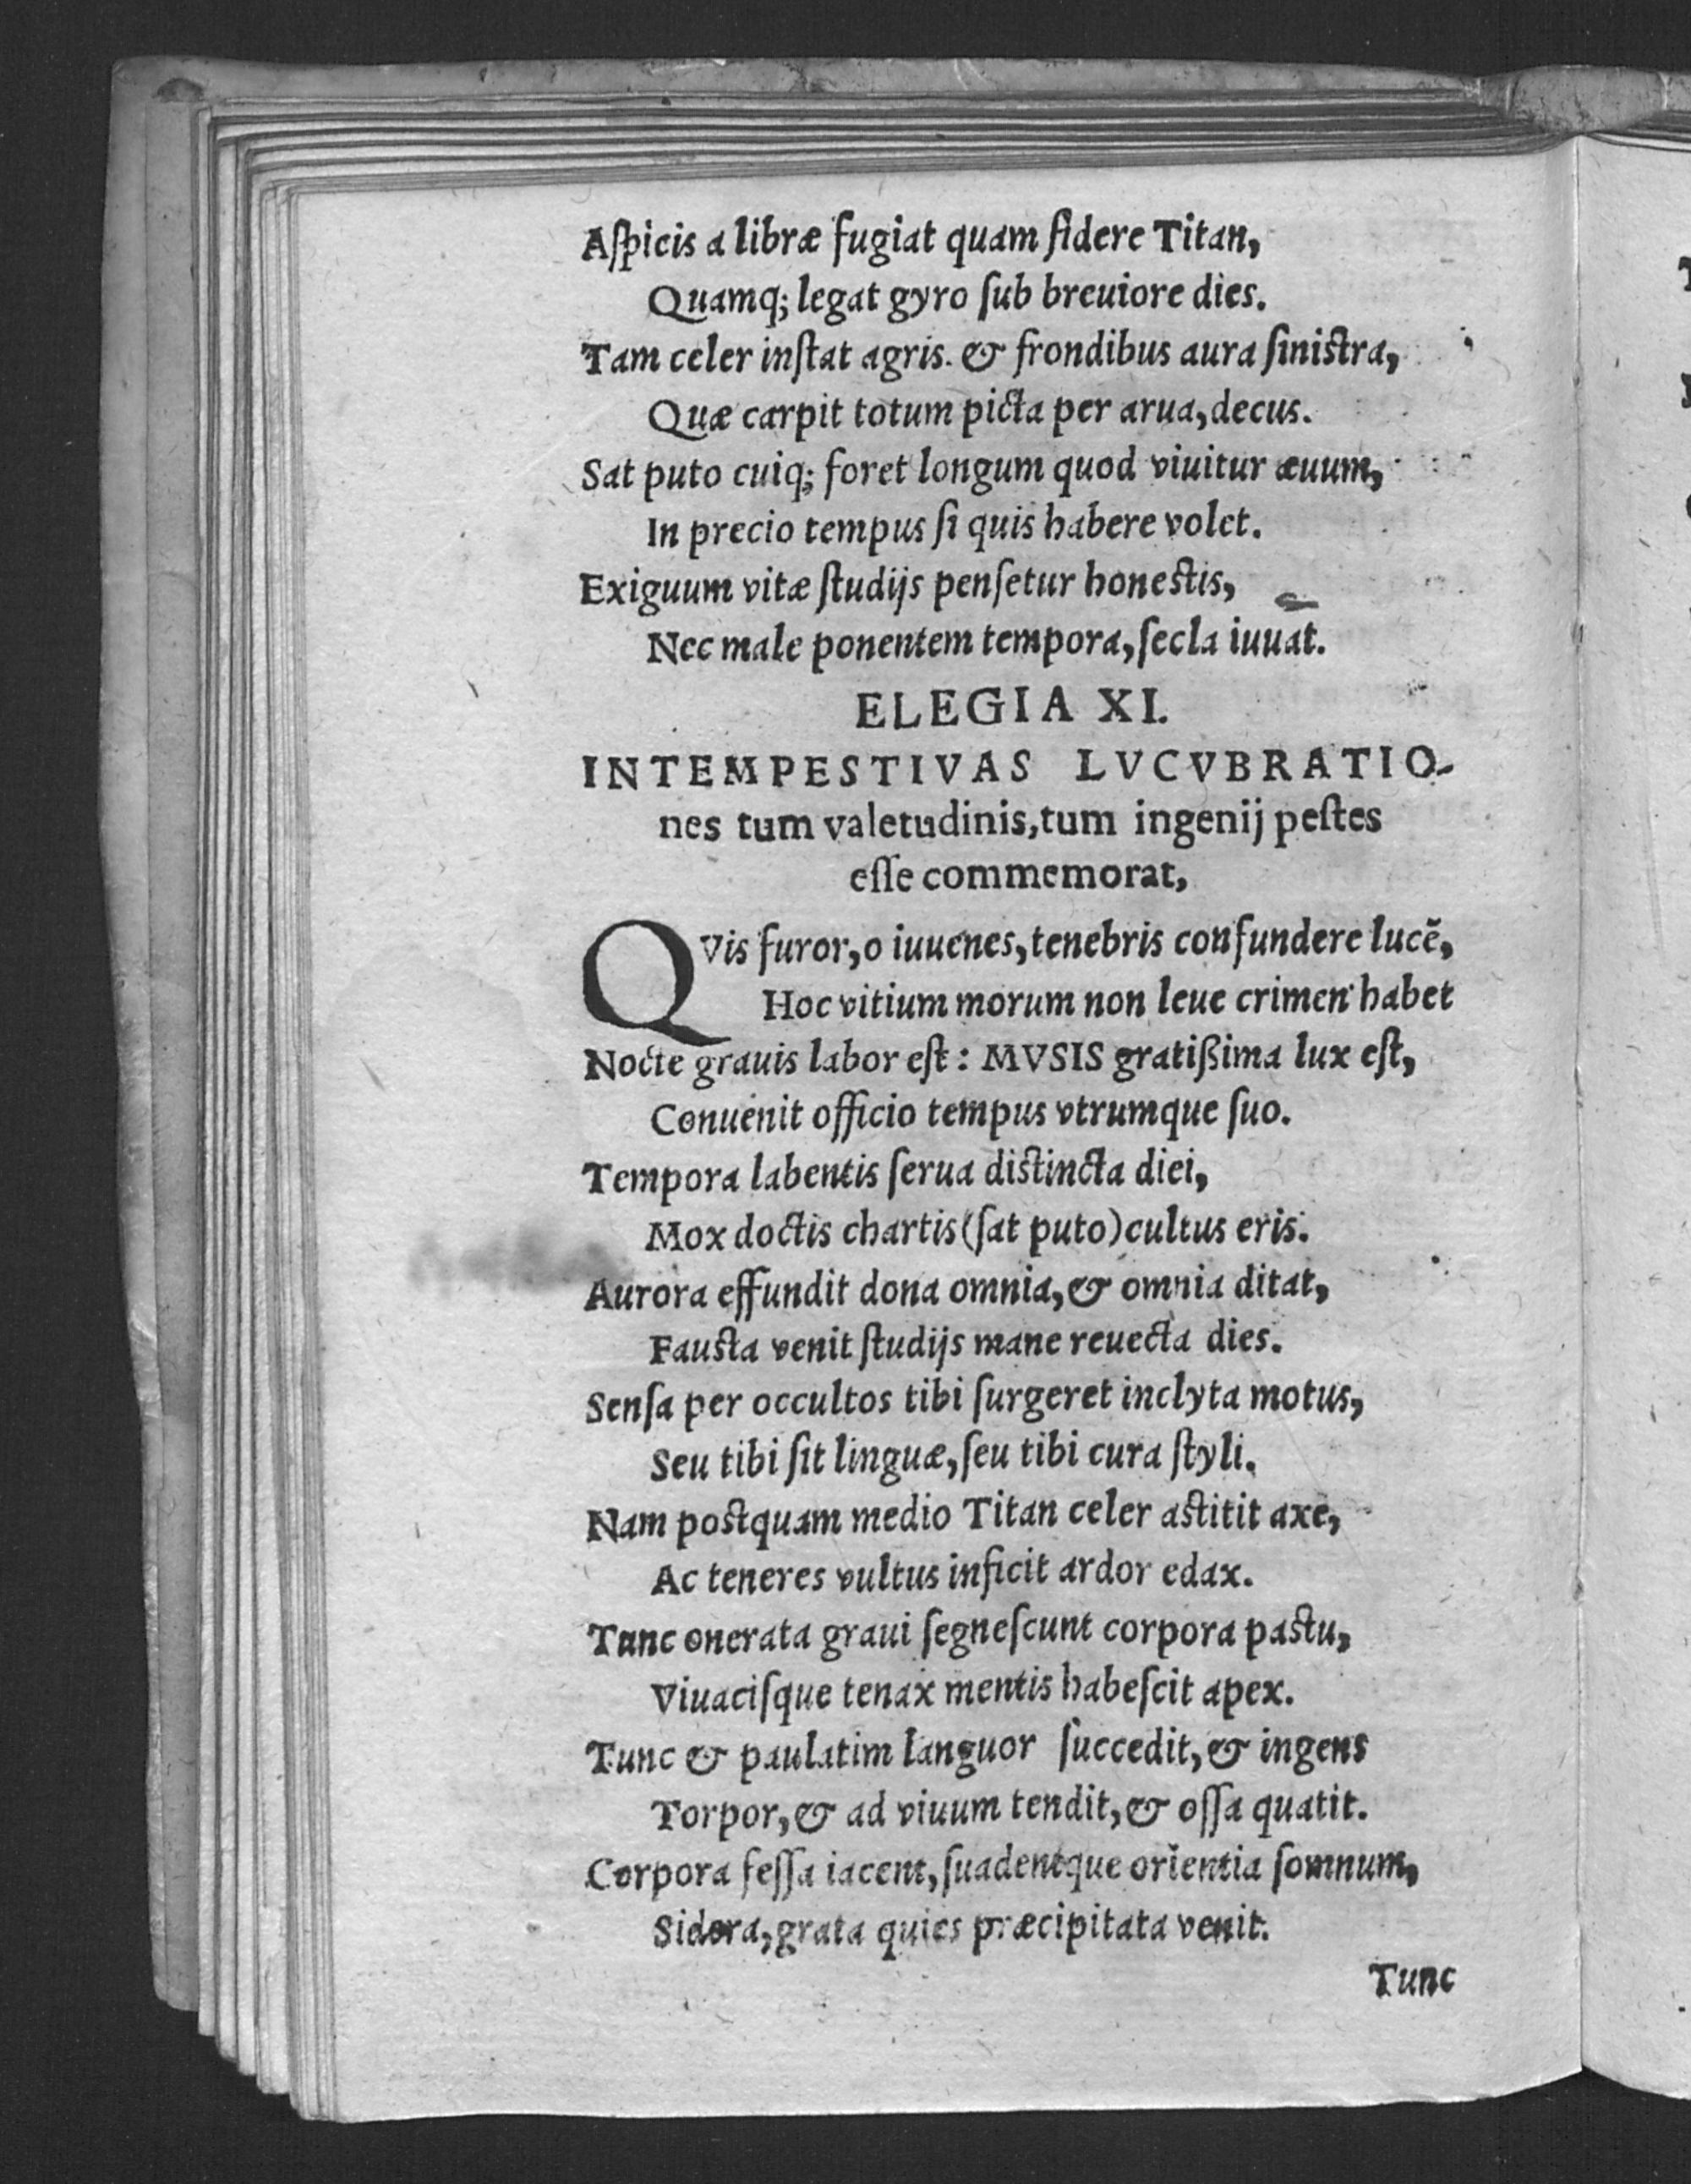 Aſpicis a libræ fugiat quam ſidere Titan,
Quamq; legat gyro ſub breuiore dies.
Tam celer inſtat agris. & frondibus aura ſiniſtra,
Quæ carpit totum picta per arua, decus.
Sat puto cuiq; foret longum quod viuitur æuum,
In precio tempus ſi quis habere volet.
Exiguum vitæ ſtudijs penſetur honeſtis,
Nec male ponentem tempora, ſecla iuuat.
ELEGIA XI.
INTEMPESTIVAS LVCVBRATIO-
nes tum valetudinis, tum ingenij peſtes
eſſe commemorat,
QVis furor, o iuuenes, tenebris confundere lucẽ,
Hoc vitium morum non leue crimen habet
Nocte grauis labor eſt: MVSIS gratißima lux eſt,
Conuenit officio tempus vtrumque ſuo.
Tempora labentis ſerua diſtincta diei,
Mox doctis chartis (ſat puto) cultus eris.
Aurora effundit dona omnia, & omnia ditat,
Fauſta venit ſtudijs mane reuecta dies.
Senſa per occultos tibi ſurgeret inclyta motus,
Seu tibi ſit linguæ, ſeu tibi cura ſtyli.
Nam poſtquam medio Titan celer aſtitit axe,
Ac teneres vultus inficit ardor edax.
Tunc onerata graui ſegneſcunt corpora paſtu,
Viuaciſque tenax mentis habeſcit apex.
Tunc & paulatim languor ſuccedit, & ingens
Torpor, & ad viuum tendit, & oſſa quatit.
Corpora feſſa iacent, ſuadentque orientia ſomnum,
Sidera, grata quies præcipitata venit.
Tunc